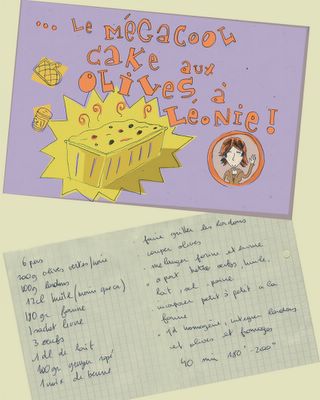 ... Le MÉGACOOL
CAKE AUX
OLIVES à
LÉONIE !
6 pers
200g olives vertes/noire
100g lardons
12cl huile (moins que ça)
180 gr farine
1 sachet levure
3 oeufs
1 dl de lait
100gr gruyer rapé
1 noix de beurre
faire griller les lardons
couper olives
melanger farine et levure
a part battre oeufs, huile,
lait, sel, poivre
incorporer petit à petit a la
farine
homogène, integrer lardons
et olives et fromages
40 mn 180°-200°